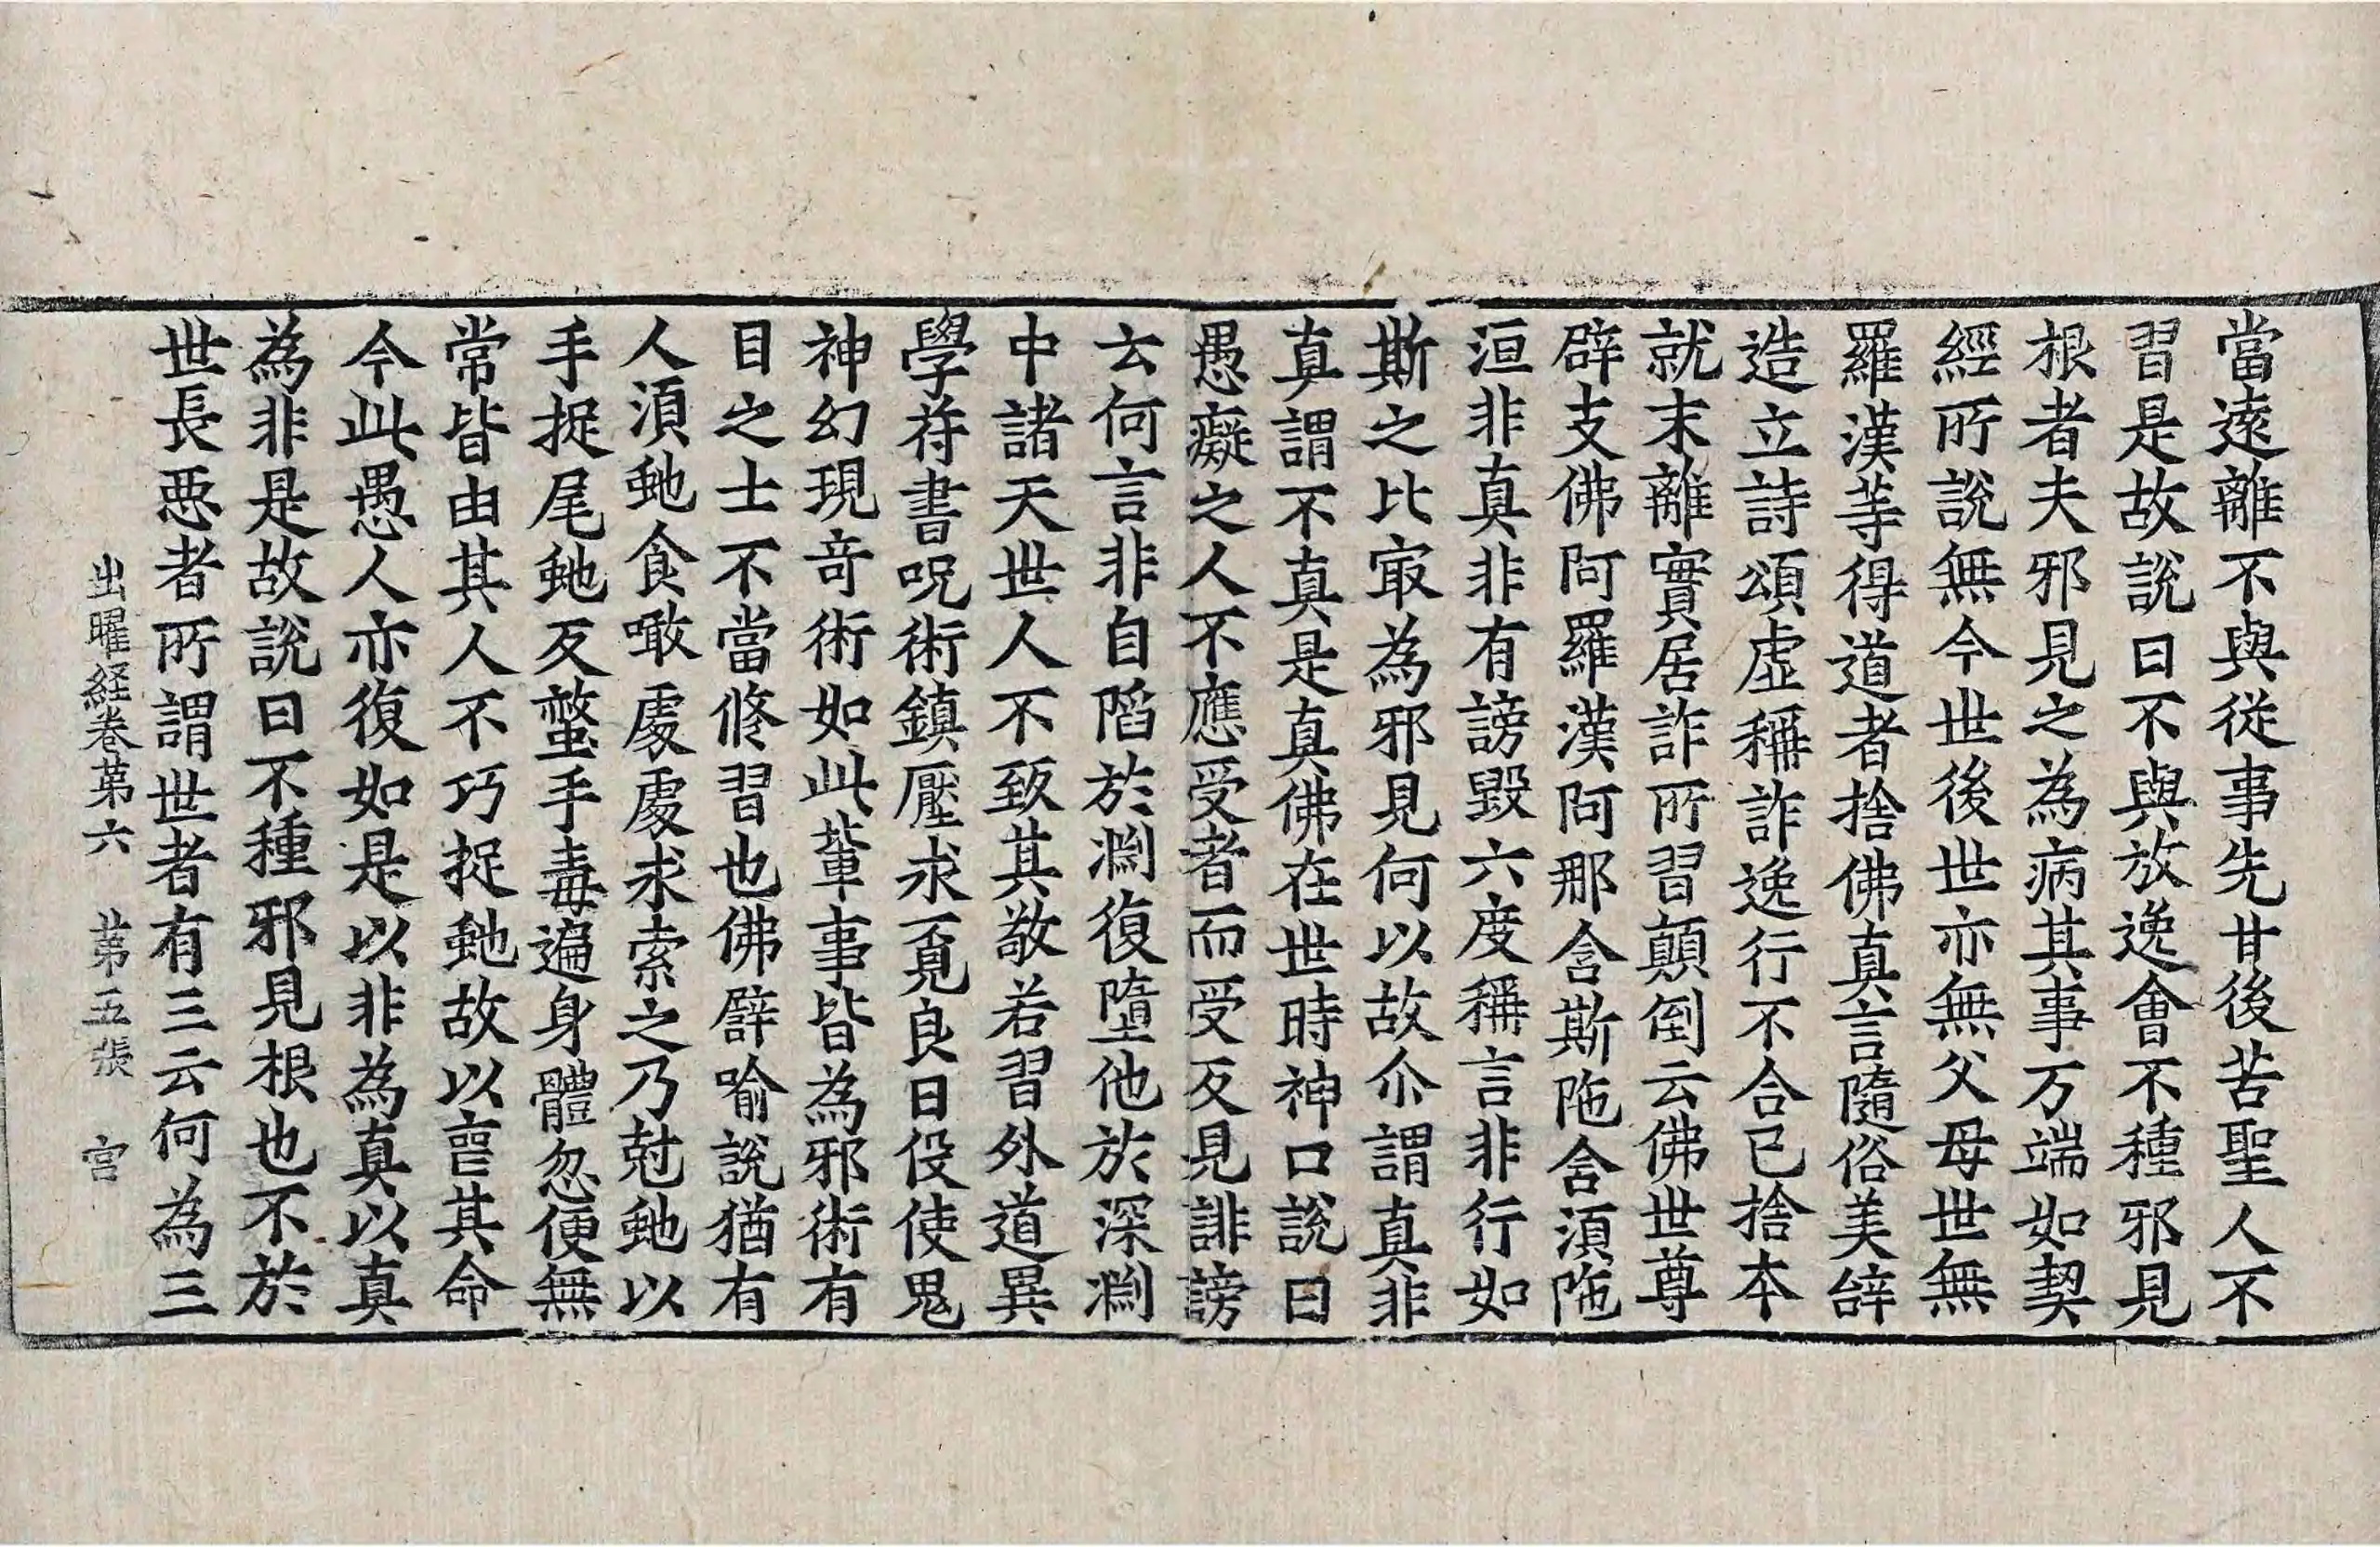 當遠離不與從事先甘後苦聖人不
習是故說曰不與放逸會不種邪見
根者夫邪見之為病其事万端如契
經所說無今世後世亦無父母世無
羅漢等得道者捨佛真言隨俗美辝
造立詩頌虛稱詐逸行不合已捨本
就末離實居詐所習顛倒云佛世尊
辟支佛阿羅漢阿那含斯陁含湏陁
洹非真非有謗毀六度稱言非行如
斯之比冣為邪見何以故尒謂真非
真謂不真是真佛在世時神口說曰
愚癡之人不應受者而受反見誹謗
云何言非自陷於淵復墮他於深淵
中諸天世人不致其敬若習外道異
學符書呪術鎮壓求覔良日役使鬼
神幻現竒術如此輩事皆為邪術有
目之士不當脩習也佛譬喻說猶有
人湏虵食噉處處求索之乃尅虵以
手捉尾虵反螫手毒遍身體忽便無
常皆由其人不巧捉虵故以喪其命
今此愚人亦復如是以非為真以真
為非是故說曰不種邪見根也不於
世長惡者所謂世者有三云何為三
出曜経卷苐六 苐五張 宫